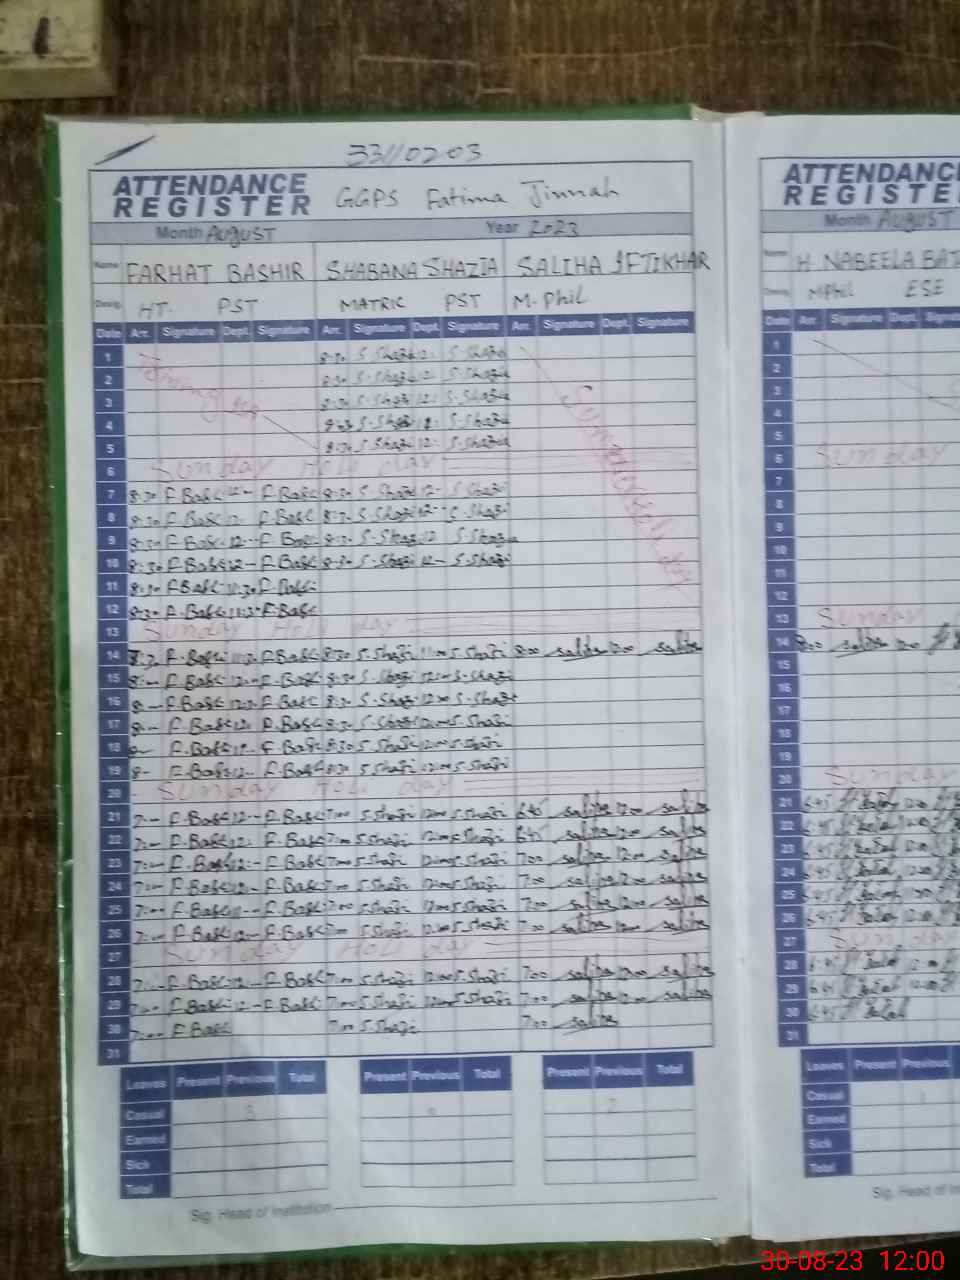 33110203
ATTENDANCE REGISTER GGPS Fatima Jinnah
Month August Year 2023
Name FARHAT BASHIR SHABANA SHAZIA SALIHA IFTIKHAR
Desig. HT. PST MATRIC PST M.Phil
Date Arr. Signature Dept. Signature Arr. Signature Dept. Signature Arr. Signature Dept. Signature
1 8:30 S.Shazi 12: S.Shazi
2 8:30 S.Shazi 12: S.Shazi
3 8:30 S.Shazi 12: S.Shazi
4 S.Shazi 12: S.Shazia
5 8:30 S.Shazi 12: S.Shazia
6 Sunday Holi day
7 8:30 F.Bash 12- F.Bash 8:30 S.Shazi 12- S.Shazi
8 8:30 F.Bash 12- F.Bash S.Shazi 12- S.Shazi
9 8:30 F.Bash 12- F.Bash 8:30 S.Shazi 12 S.Shazia
10 8:30 F.Bash 12- F.Bash 8:30 S.Shazi 12- S.Shazi
11 8:30 F.Bash 11:30 F.Bash
12 8:30 F.Bash 11:30 F.Bash
13 Sunday Holi day
14 F.Bash F.Bash 8:30 S.Shazi 11:00 S.Shazi 8:00 saliha 12:00 saliha
15 8:- F.Bash 12:- F.Bash 8:30 S.Shazi 12:00 S.Shazi
16 8:- F.Bash F.Bash 8:30 S.Shazi 12:00 S.Shazi
17 8:- F.Bash F.Bash 8:30 S.Shazi 12:00 S.Shazi
18 8- F.Bash 12- F.Bash 8:30 S.Shazi 12:00 S.Shazi
19 8- F.Bash 12- F.Bash 8:30 S.Shazi 12:00 S.Shazi
20 Sunday Holi day
21 7:- F.Bash 12:- F.Bash 7:00 S.Shazi 12:00 S.Shazi 6:45 saliha 12:00 saliha
22 7:- F.Bash 12:- F.Bash 7:00 S.Shazi 12:00 S.Shazi 6:45 saliha 12:00 saliha
23 7:- F.Bash 12:- F.Bash 7:00 S.Shazi 12:00 S.Shazi 7:00 saliha 12:00 saliha
24 7:- F.Bash 12- F.Bash 7:00 S.Shazi 12:00 S.Shazi 7:00 saliha 12:00 saliha
25 7:- F.Bash F.Bash 7:00 S.Shazi 12:00 S.Shazi 7:00 saliha 12:00 saliha
26 7:- F.Bash 12- F.Bash 7:00 S.Shazi 12:00 S.Shazi 7:00 saliha saliha
27 Sunday Holi day
28 7:- F.Bash 12- F.Bash 7:00 S.Shazi 12:00 S.Shazi 7:00 saliha 12:00 saliha
29 7:- F.Bash 12- F.Bash 7:00 S.Shazi 12:00 S.Shazi 7:00 saliha 12:00 saliha
30 7:- F.Bash 7:00 S.Shazi 7:00 saliha
31
Leaves Present Previous Total Present Previous Total Present Previous Total
Casual 3
Earned
Sick
Total
Sig. Head of Institution
ATTENDANCE REGISTER
Month August
Name H. NABEELA
Desig. MPhil ESE
Date Arr. Signature Dept.
1
2
3
4
5
6 Sunday
7
8
9
10
11
12
13 Sunday
14 8:00 12:00
15
16
17
18
19
20 Sunday
21 6:45 12:00
22 6:45 12:00
23 6:45 12:00
24 6:45 12:00
25 6:45
26 6:45 12:00
27 Sunday
28 6:45
29 6:45 12:00
30 6:45
31
Leaves Present Previous
Casual 1
Earned
Sick
Total
Sig. Head of
30-08-23 12:00